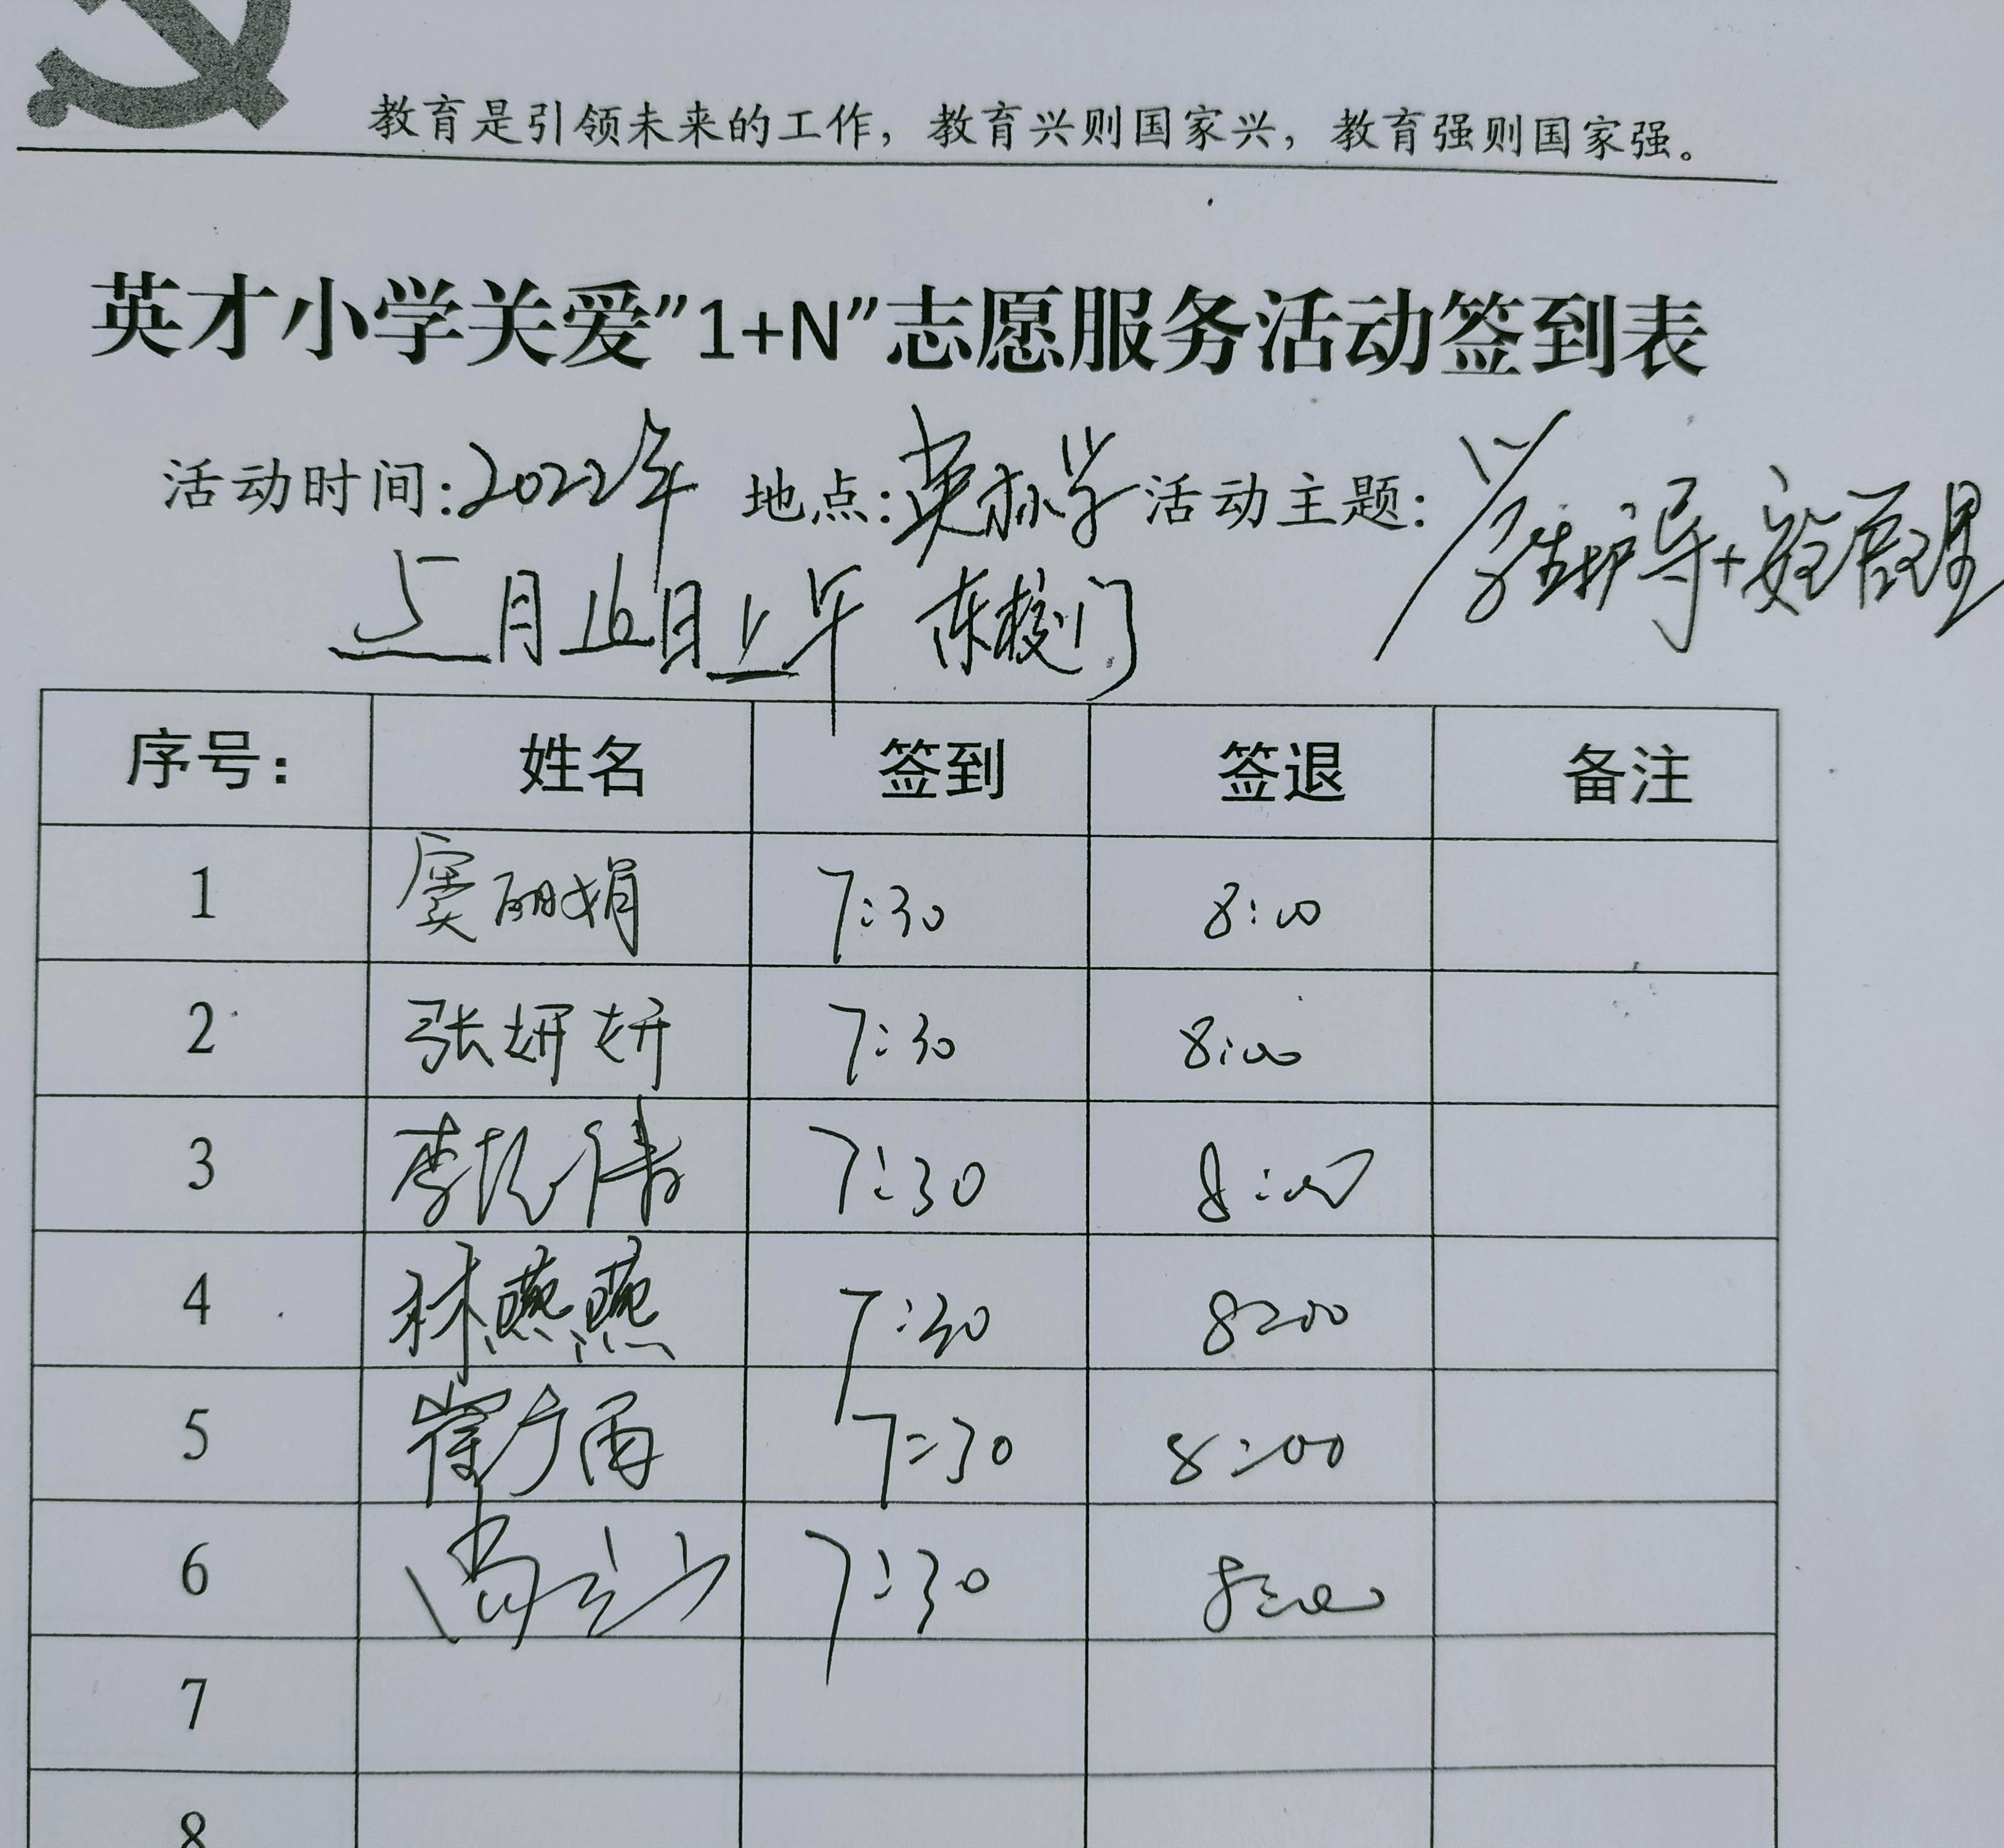 教育是引领未来的工作，教育兴则国家兴，教育强则国家强。
英才小学关爱”1+N”志愿服务活动签到表
活动时间:2022年 地点:英才小学 活动主题: 学生护导+安全管理
5月16日上午 东校门
序号: 姓名 签到 签退 备注
1 窦丽娟 7:30 8:00
2 张妍妍 7:30 8:00
3 李 7:30 8:00
4 林燕燕 7:30 8:00
5 崔方雨 7:30 8:00
6 7:30 8:00
7
8